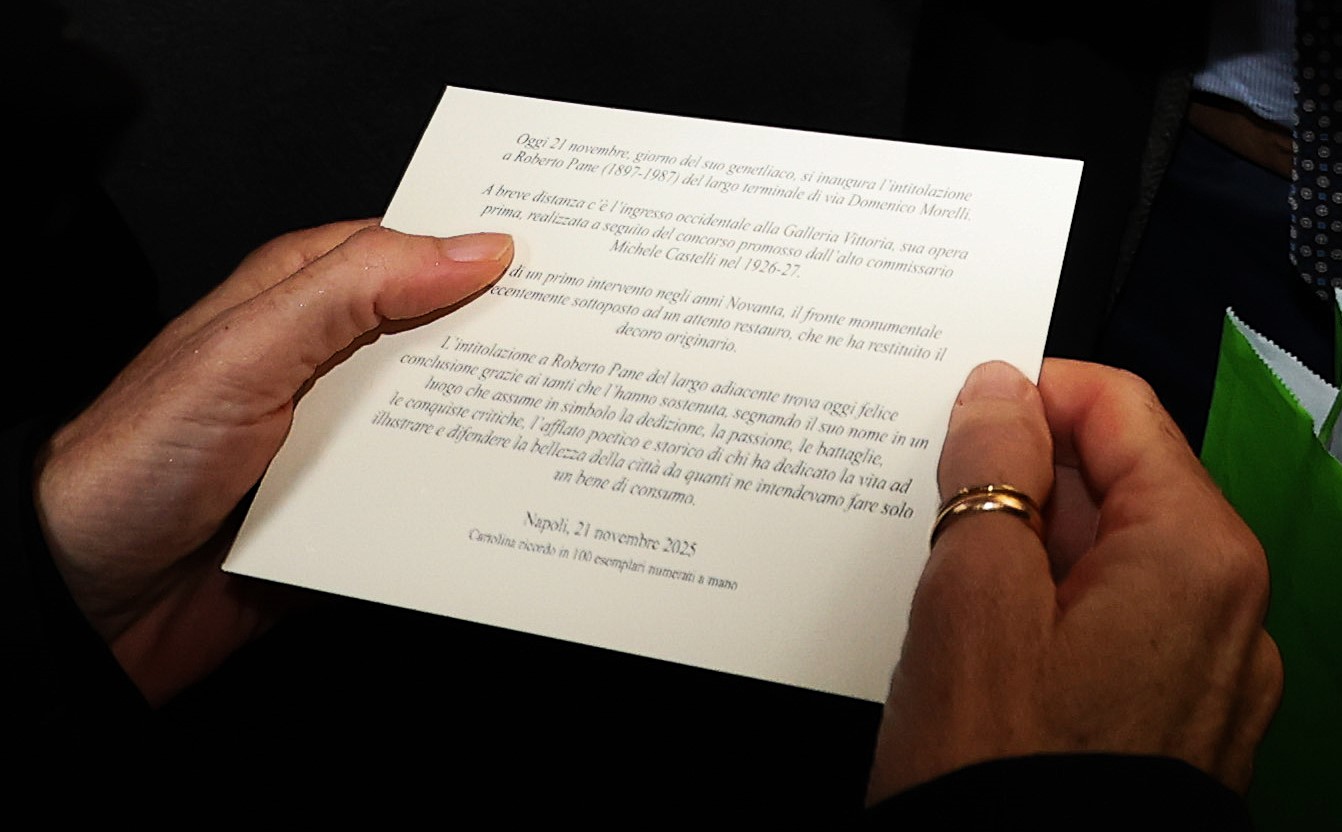 Oggi 21 novembre, giorno del suo genetliaco, si inaugura l'intitolazione
a Roberto Pane (1897-1987) del largo terminale di via Domenico Morelli.
A breve distanza c'è l'ingresso occidentale alla Galleria Vittoria, sua opera
prima, realizzata a seguito del concorso promosso dall'alto commissario
Michele Castelli nel 1926-27.
di un primo intervento negli anni Novanta, il fronte monumentale
ecentemente sottoposto ad un attento restauro, che ne ha restituito il
decoro originario.
L'intitolazione a Roberto Pane del largo adiacente trova oggi felice
conclusione grazie ai tanti che l'hanno sostenuta, segnando il suo nome in un
luogo che assume in simbolo la dedizione, la passione, le battaglie,
le conquiste critiche, l'afflato poetico e storico di chi ha dedicato la vita ad
illustrare e difendere la bellezza della città da quanti ne intendevano fare solo
un bene di consumo.
Napoli, 21 novembre 2025
Cartolina ricordo in 100 esemplari numerati a mano